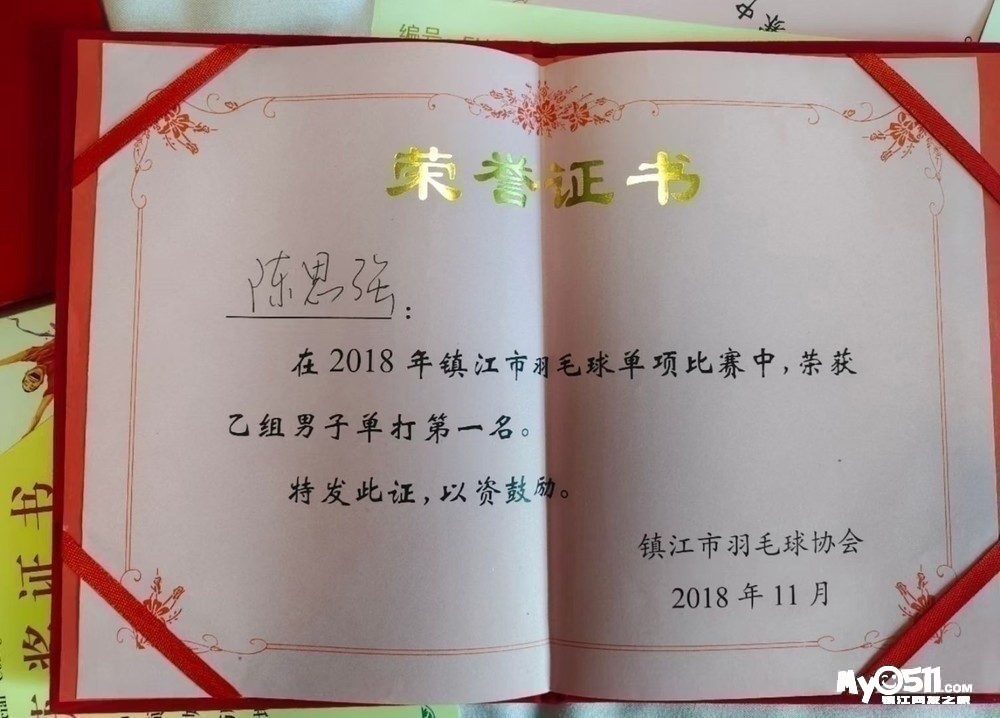 编号
荣誉证书
陈思强:
在2018年镇江市羽毛球单项比赛中,荣获
乙组男子单打第一名。
特发此证,以资鼓励。
镇江市羽毛球协会
2018年11月
奖证书
My0511.COM
镇江网友之家